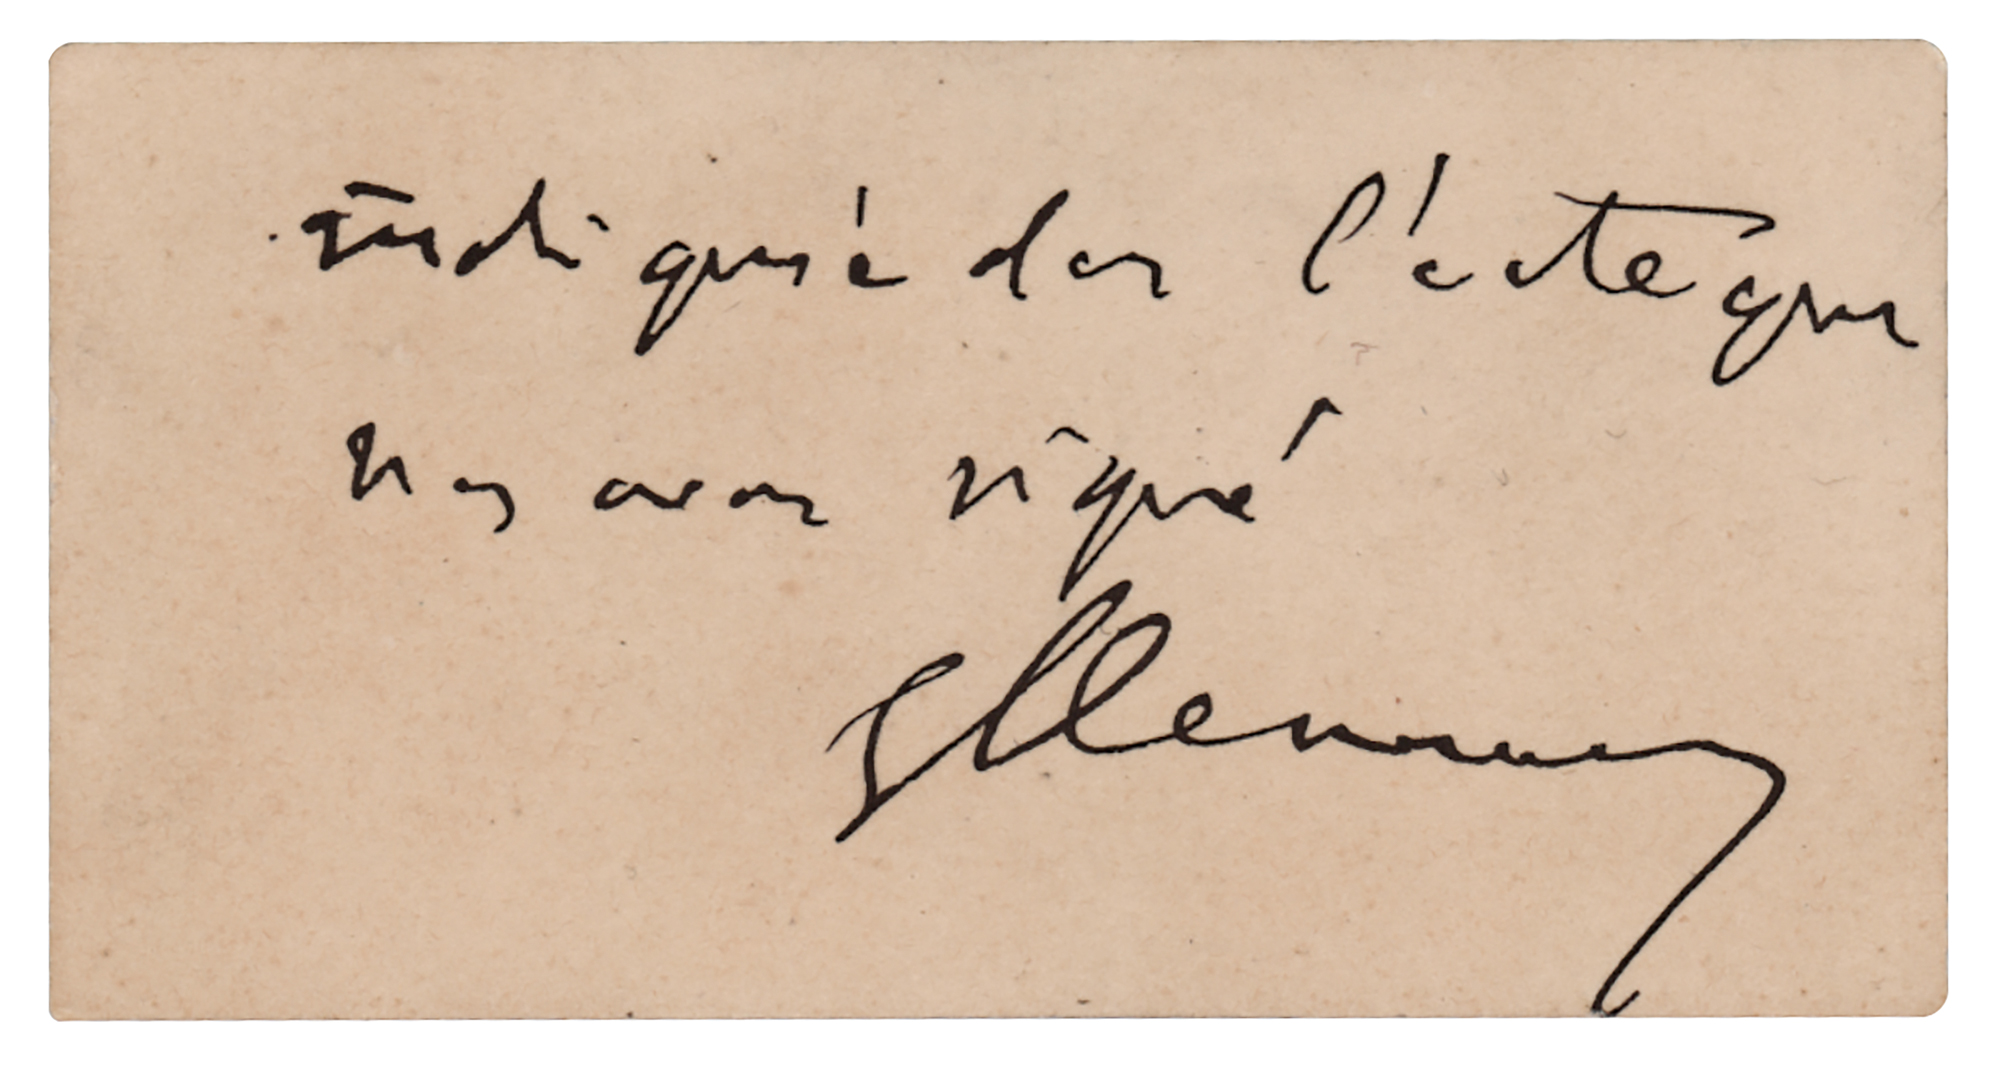 indiquée dans l'acte que
nous avons signé
GClemenceau